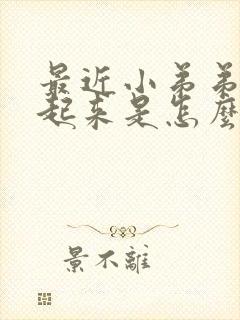 最近小弟弟
起来是怎麼
景不離